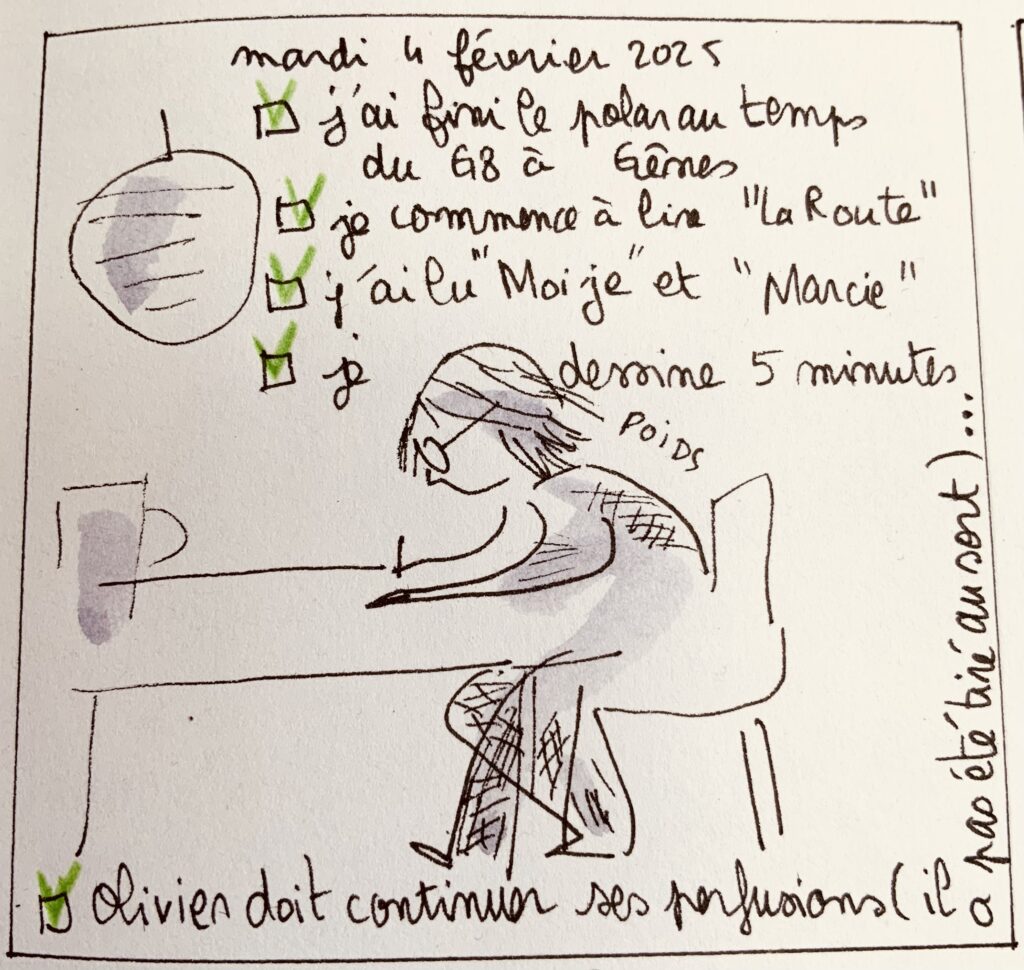 mardi 4 février 2025
j'ai fini le polar au temps
du G8 à Gênes
je commence à lire "La Route"
j'ai lu "Moi je" et "Marcie"
je dessine 5 minutes
POIDS
Olivier doit continuer ses perfusions (il a
pas été tiré au sort)...